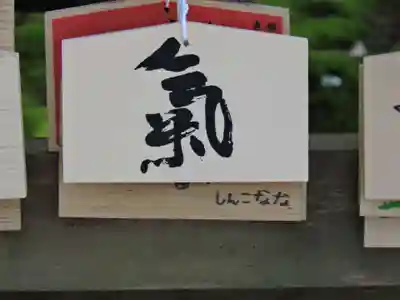 氣
しんこなな